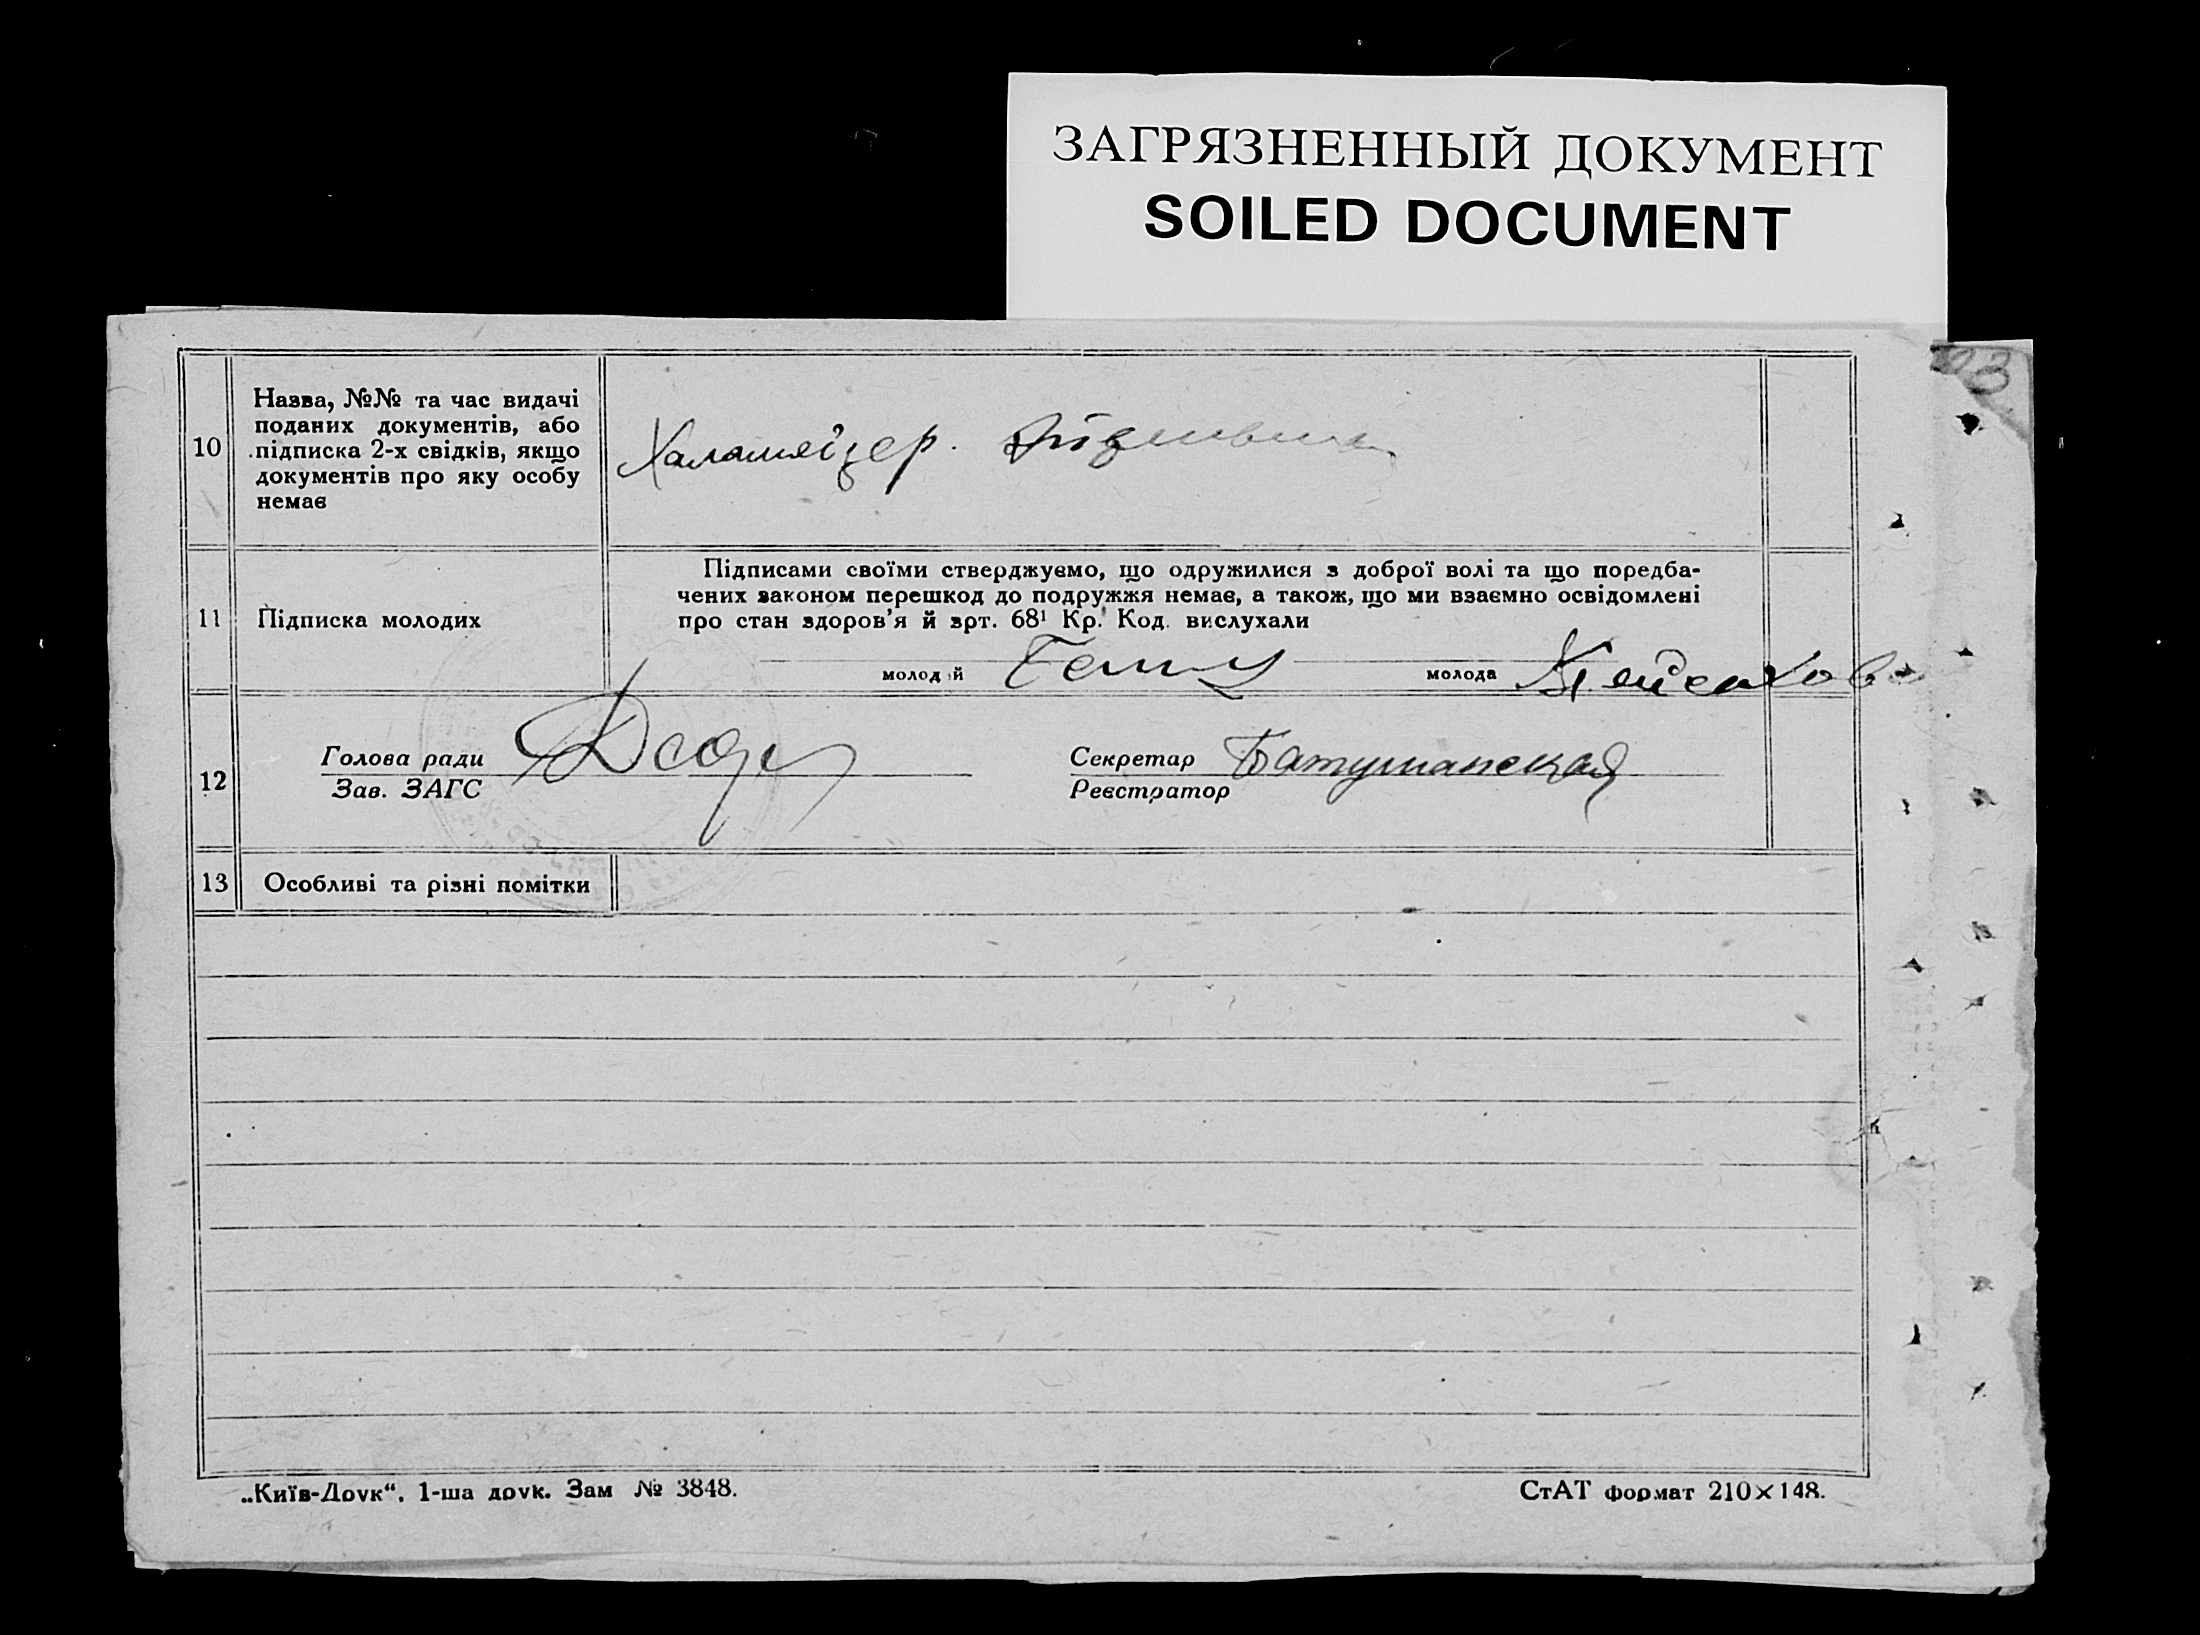 ЗАГРЯЗНЕННЫЙ ДОКУМЕНТ
SOILED DOCUMENT
10
Назва, №№ та час видачі
поданих документів, або
підписка 2-х свідків, якщо
документів про яку особу
немає
11
Підписка молодих
Підписами своїми стверджуємо, що одружилися з доброї волі та що поредба-
чених законом перешкод до подружжя немає, а також, що ми взаємно освідомлені
про стан здоров'я й зрт. 68¹ Кр. Код. вислухали
молодий
молода
12
Голова ради
Зав. ЗАГС
Секретар Батушанская
Реєстратор
13 Особливі та різні помітки
„Київ-Друк“, 1-ша друк. Зам № 3848.
СтАТ формат 210×148.